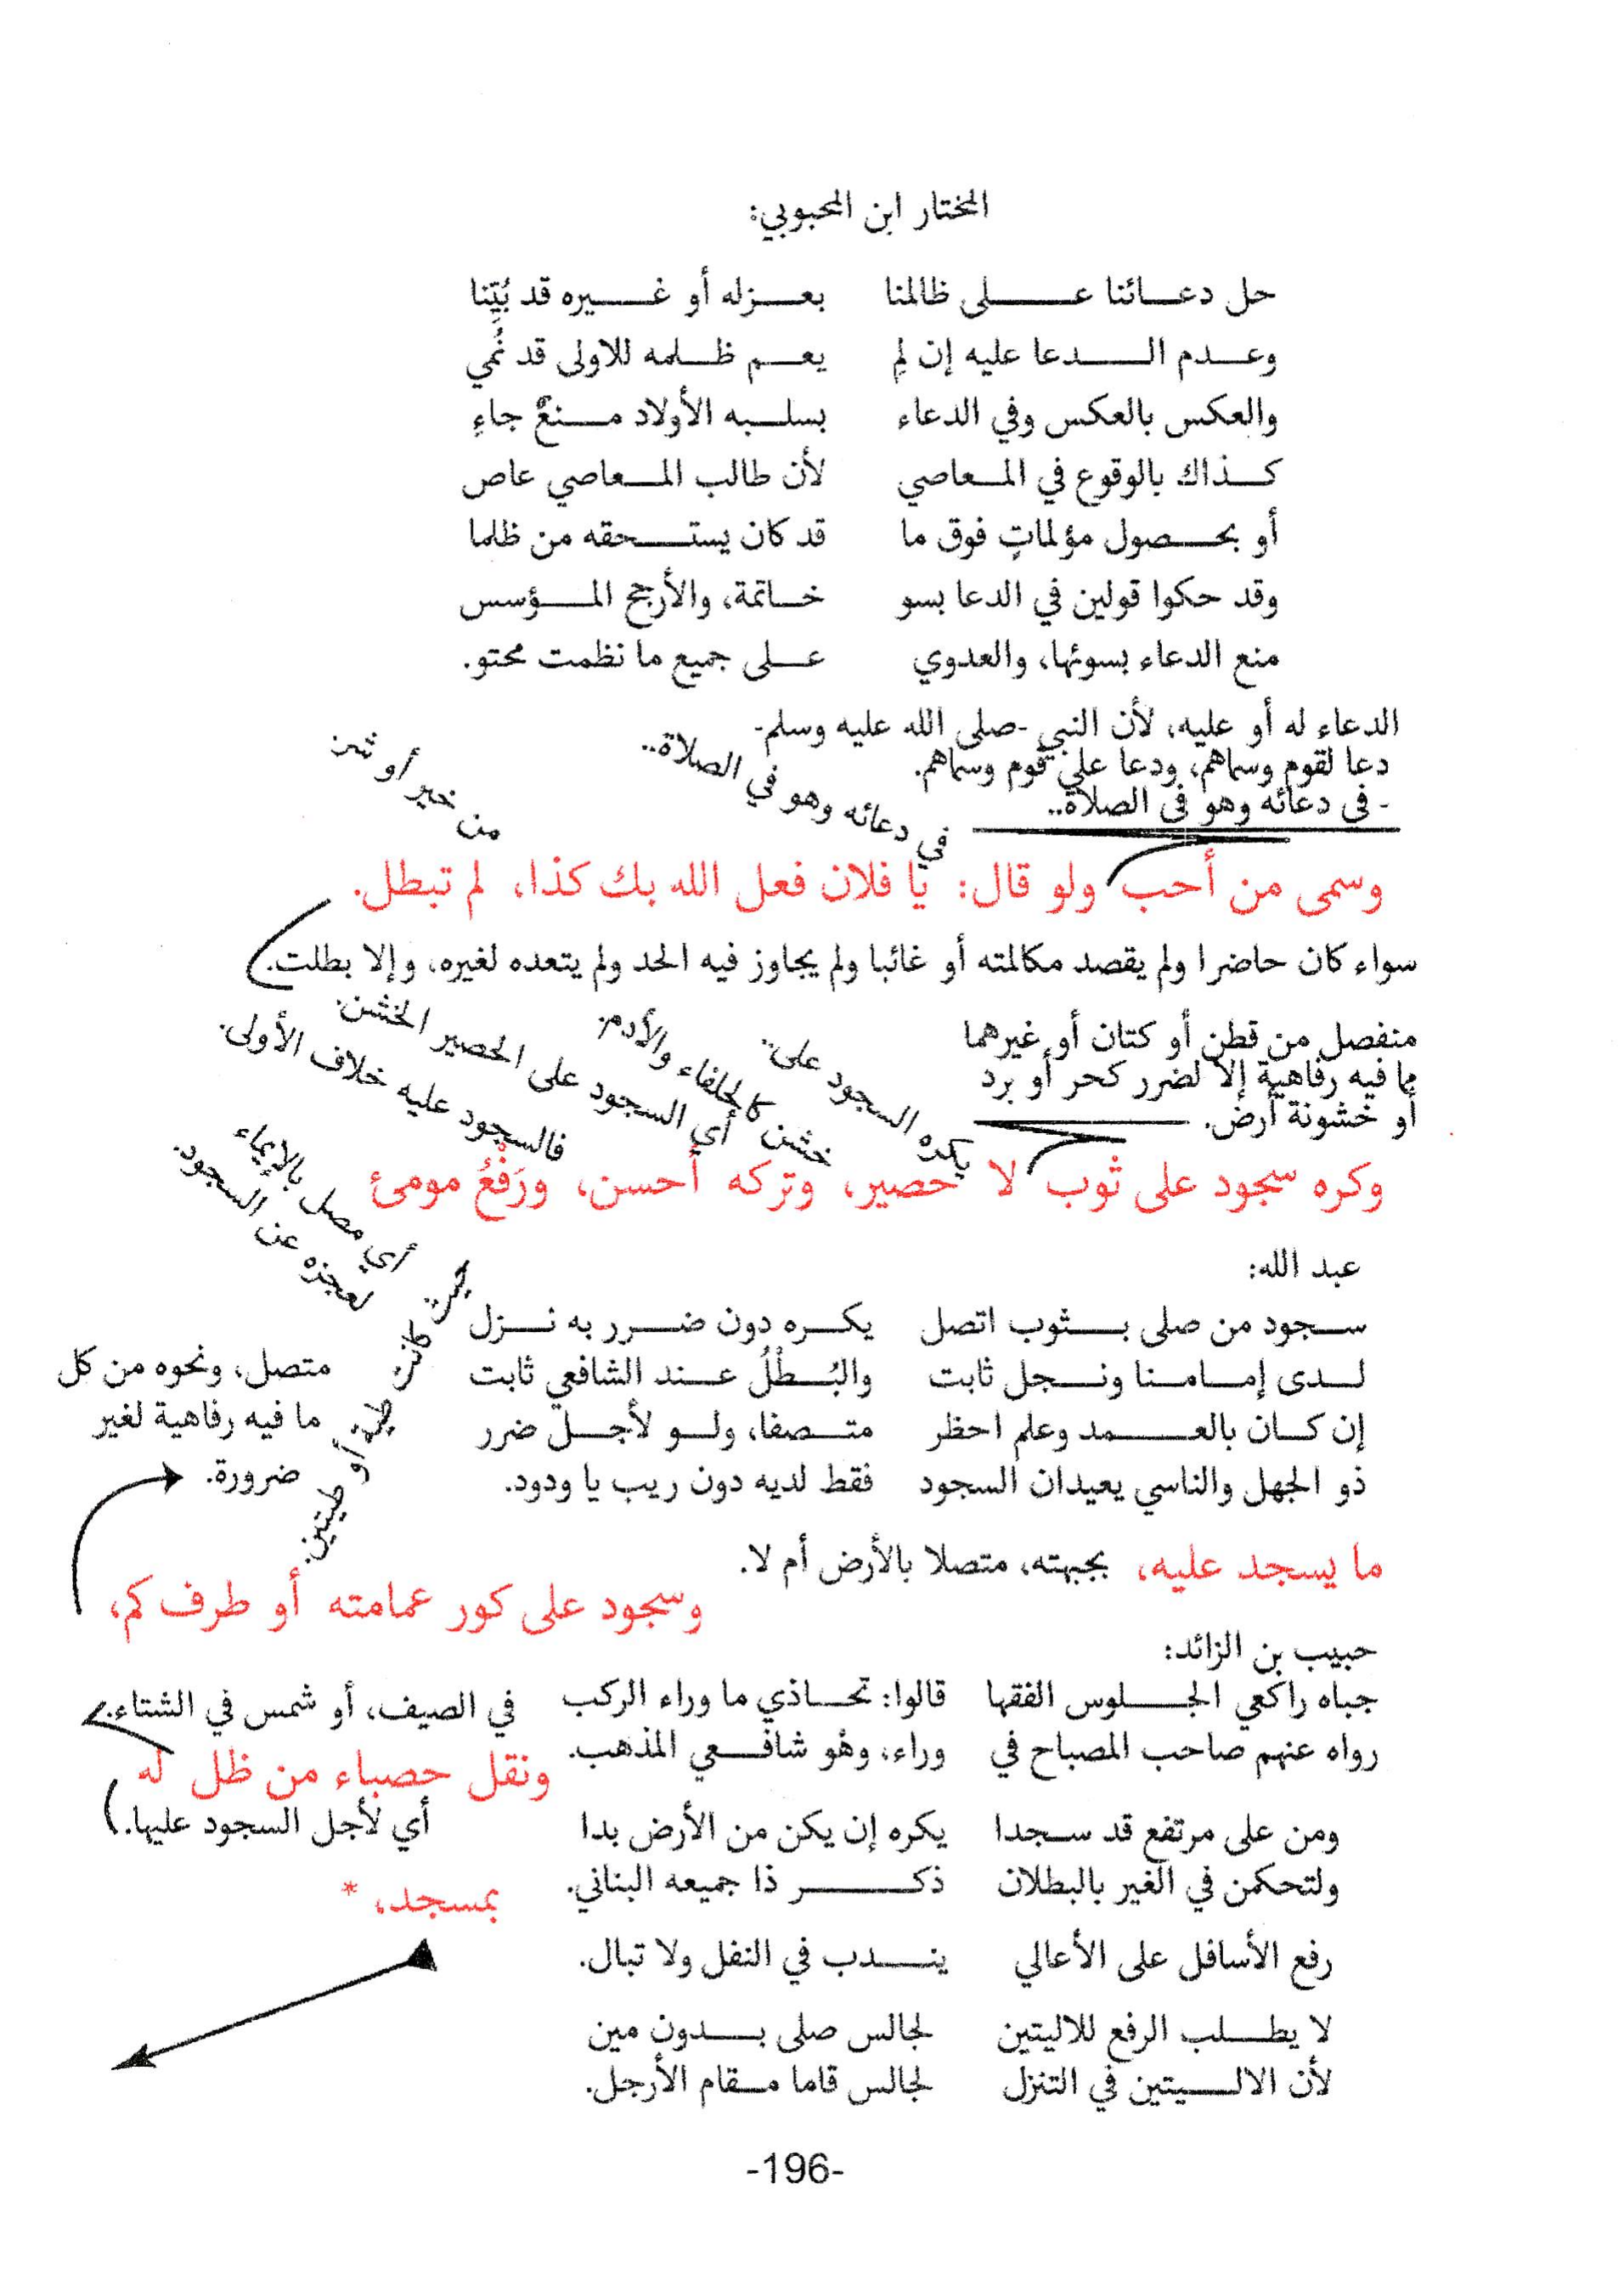 المختار ابن المحبوبي:
حل دعائنا على ظالمنا بعزله أو غيره قد بُيِّنا
وعدم الدعا عليه إن لمِ يعم ظلمه للاولى قد نُمي
والعكس بالعكس وفي الدعاء بسلبه الأولاد منعٌ جاءِ
كذاك بالوقوع في المعاصي لأن طالب المعاصي عاص
أو بحصول مؤلماتٍ فوق ما قد كان يستحقه من ظلما
وقد حكوا قولين في الدعا بسو خاتمة، والأرجح المؤسس
منع الدعاء بسوئها، والعدوي على جميع ما نظمت محتو.
الدعاء له أو عليه، لأن النبي -صلى الله عليه وسلم-
دعا لقوم وسماهم، ودعا على قوم وسماهم.
- في دعائه وهو في الصلاة..
في دعائه وهو في الصلاة..
من خير أو شر
وسمى من أحب ولو قال: يا فلان فعل الله بك كذا، لم تبطل.
سواء كان حاضرا ولم يقصد مكالمته أو غائبا ولم يجاوز فيه الحد ولم يتعده لغيره، وإلا بطلت.
منفصل من قطن أو كتان أو غيرهما
مما فيه رفاهية إلا لضرر كحر أو برد
أو خشونة أرض.
يكره السجود على..
خشن كالحلفاء والأدم.
أي السجود على الحصير الخشن.
فالسجود عليه خلاف الأولى.
وكره سجود على ثوب لا حصير، وتركه أحسن، ورَفْعُ مومئ
أي مصل بالإيماء
لعجزه عن السجود.
عبد الله:
سجود من صلى بثوب اتصل يكره دون ضرر به نزل
لدى إمامنا ونجل ثابت والبُطْلُ عند الشافعي ثابت
إن كان بالعمد وعلم احظر متصفا، ولو لأجل ضرر
ذو الجهل والناسي يعيدان السجود فقط لديه دون ريب يا ودود.
حيث كانت طية أو طيتين.
متصل، ونحوه من كل
ما فيه رفاهية لغير
ضرورة.
ما يسجد عليه، بجبهته، متصلا بالأرض أم لا.
وسجود على كور عمامته أو طرف كم،
حبيب بن الزائد:
جباه راكعي الجلوس الفقها قالوا: تحاذي ما وراء الركب
رواه عنهم صاحب المصباح في وراء، وهْو شافعي المذهب.
في الصيف، أو شمس في الشتاء.
ونقل حصباء من ظل له
أي لأجل السجود عليها.
ومن على مرتفع قد سجدا يكره إن يكن من الأرض بدا
ولتحكمن في الغير بالبطلان ذكر ذا جميعه البناني.
بمسجد، *
رفع الأسافل على الأعالي يندب في النفل ولا تبال.
لا يطلب الرفع للاليتين لجالس صلى بدون مين
لأن الاليتين في التنزل لجالس قاما مقام الأرجل.
-196-